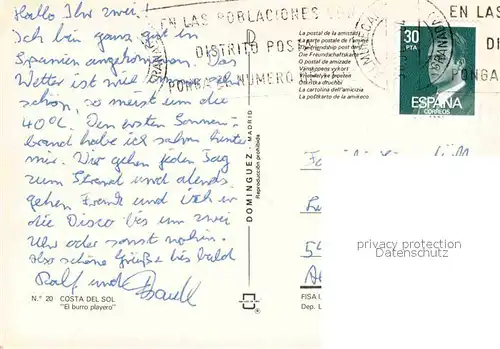 Hallo Ihr zwei!
Ich bin ganz gut in
Spanien angekommen. Das
Wetter ist wie immer sehr
schön, so meist um die
40°C. Den ersten Sonnen-
brand habe ich schon hinter
mir. Wir gehen jeden Tag
zum Strand und abends
gehen Frank und ich in
die Disco bis um zwei
Uhr oder sonst wohin.
Also schöne Grüße bis bald
Ralf und Frank
N.º 20 COSTA DEL SOL
"El burro playero"
DOMINGUEZ - MADRID
Reproducción prohibida
EN LAS POBLACIONES
DISTRITO POSTAL
PONGA EL NUMERO
La postal de la amistad
La carte postale de l'amitié
The friendship post card
Die Freundschaftskarte
O postal de amizade
Vänskapens vykort
La cartolina dell'amicizia
La postkarto de la amikeco
30
PTA
ESPAÑA
CORREOS
EN LAS
DI
PONGA
privacy protection
Datenschutz
FISA I.
Dep. L